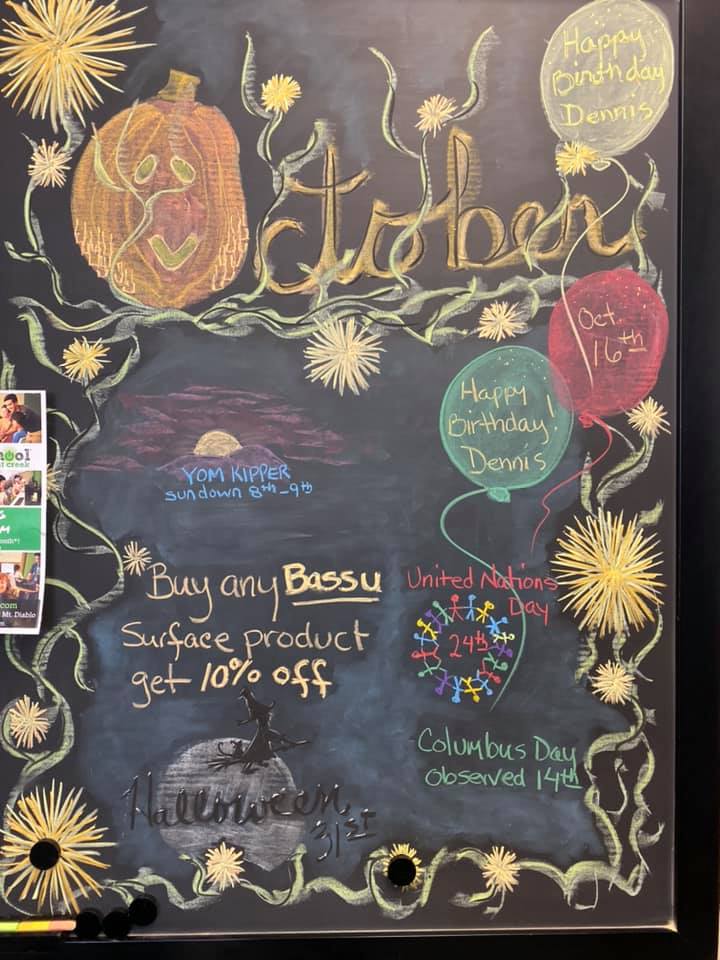 Happy
Birthday
Dennis
October
Oct.
16th
Happy
Birthday!
Dennis
YOM KIPPER
sundown 8th-9th
Buy any Bassu
Surface product
get 10% off
United Nations
Day
24th
Columbus Day
observed 14th
Halloween
31st
Mt. Diablo